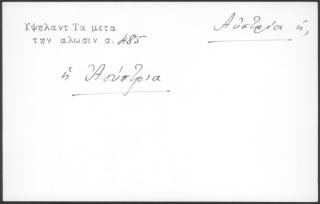 Ὑψηλαντ Τα μετα
την αλωσιν σ. 485
Αὐστρία ἡ,
ἡ Ἀούστρια